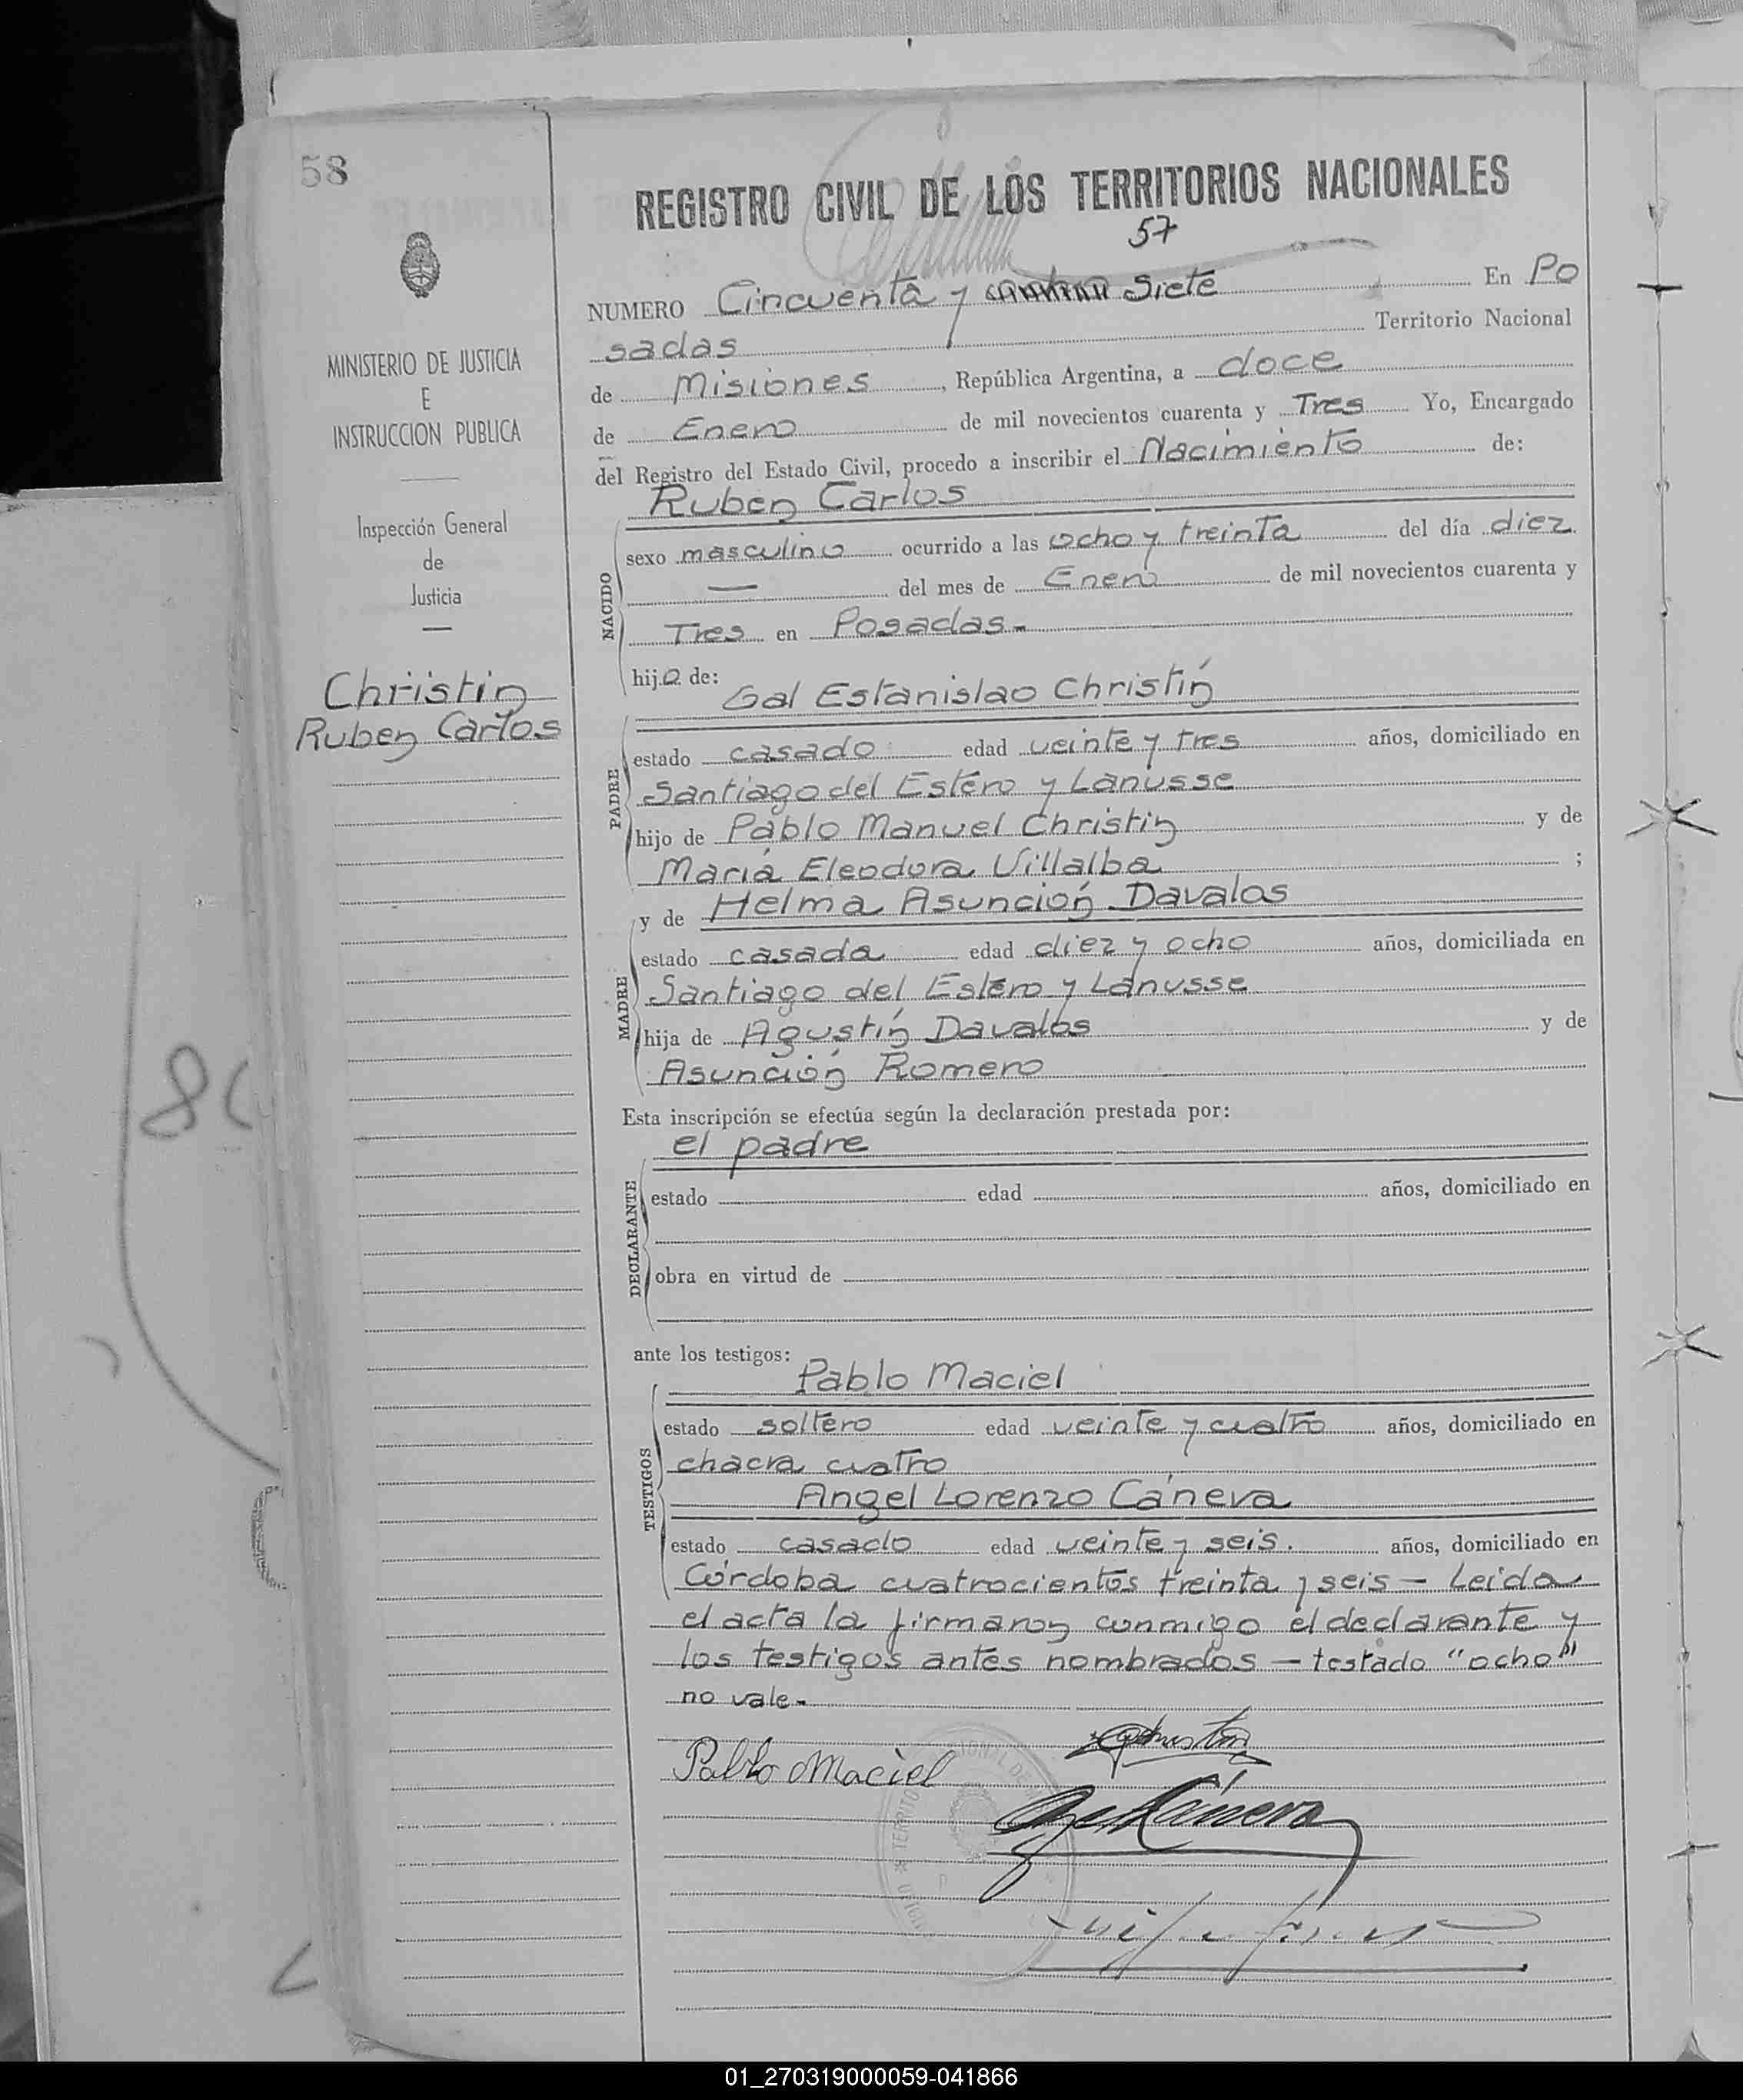 58
REGISTRO CIVIL DE LOS TERRITORIOS NACIONALES
57
NUMERO Cincuenta y siete En Po
sadas Territorio Nacional
de Misiones, República Argentina, a doce
de Enero de mil novecientos cuarenta y Tres Yo, Encargado
del Registro del Estado Civil, procedo a inscribir el Nacimiento de:
Ruben Carlos
sexo masculino ocurrido a las ocho y treinta del día diez
— del mes de Enero de mil novecientos cuarenta y
Tres en Posadas.-
hijo de:
Gal Estanislao Christín
estado casado edad veinte y tres años, domiciliado en
Santiago del Estero y Lanusse
hijo de Pablo Manuel Christin y de
María Eleodora Villalba ;
y de Helma Asunción Davalos
estado casada edad diez y ocho años, domiciliada en
Santiago del Estero y Lanusse
hija de Agustín Davalos y de
Asunción Romero
Esta inscripción se efectúa según la declaración prestada por:
el padre
estado edad años, domiciliado en
obra en virtud de
ante los testigos:
Pablo Maciel
estado soltero edad veinte y cuatro años, domiciliado en
chacra cuatro
Angel Lorenzo Cáneva
estado casado edad veinte y seis. años, domiciliado en
Córdoba cuatrocientos treinta y seis — Leida
el acta la firmaron conmigo el declarante y
los testigos antes nombrados — testado "ocho"
no vale.-
Pablo Maciel
NACIDO
PADRE
MADRE
DECLARANTE
TESTIGOS
MINISTERIO DE JUSTICIA
E
INSTRUCCION PUBLICA
Inspección General
de
Justicia
Christin
Ruben Carlos
01_270319000059-041866